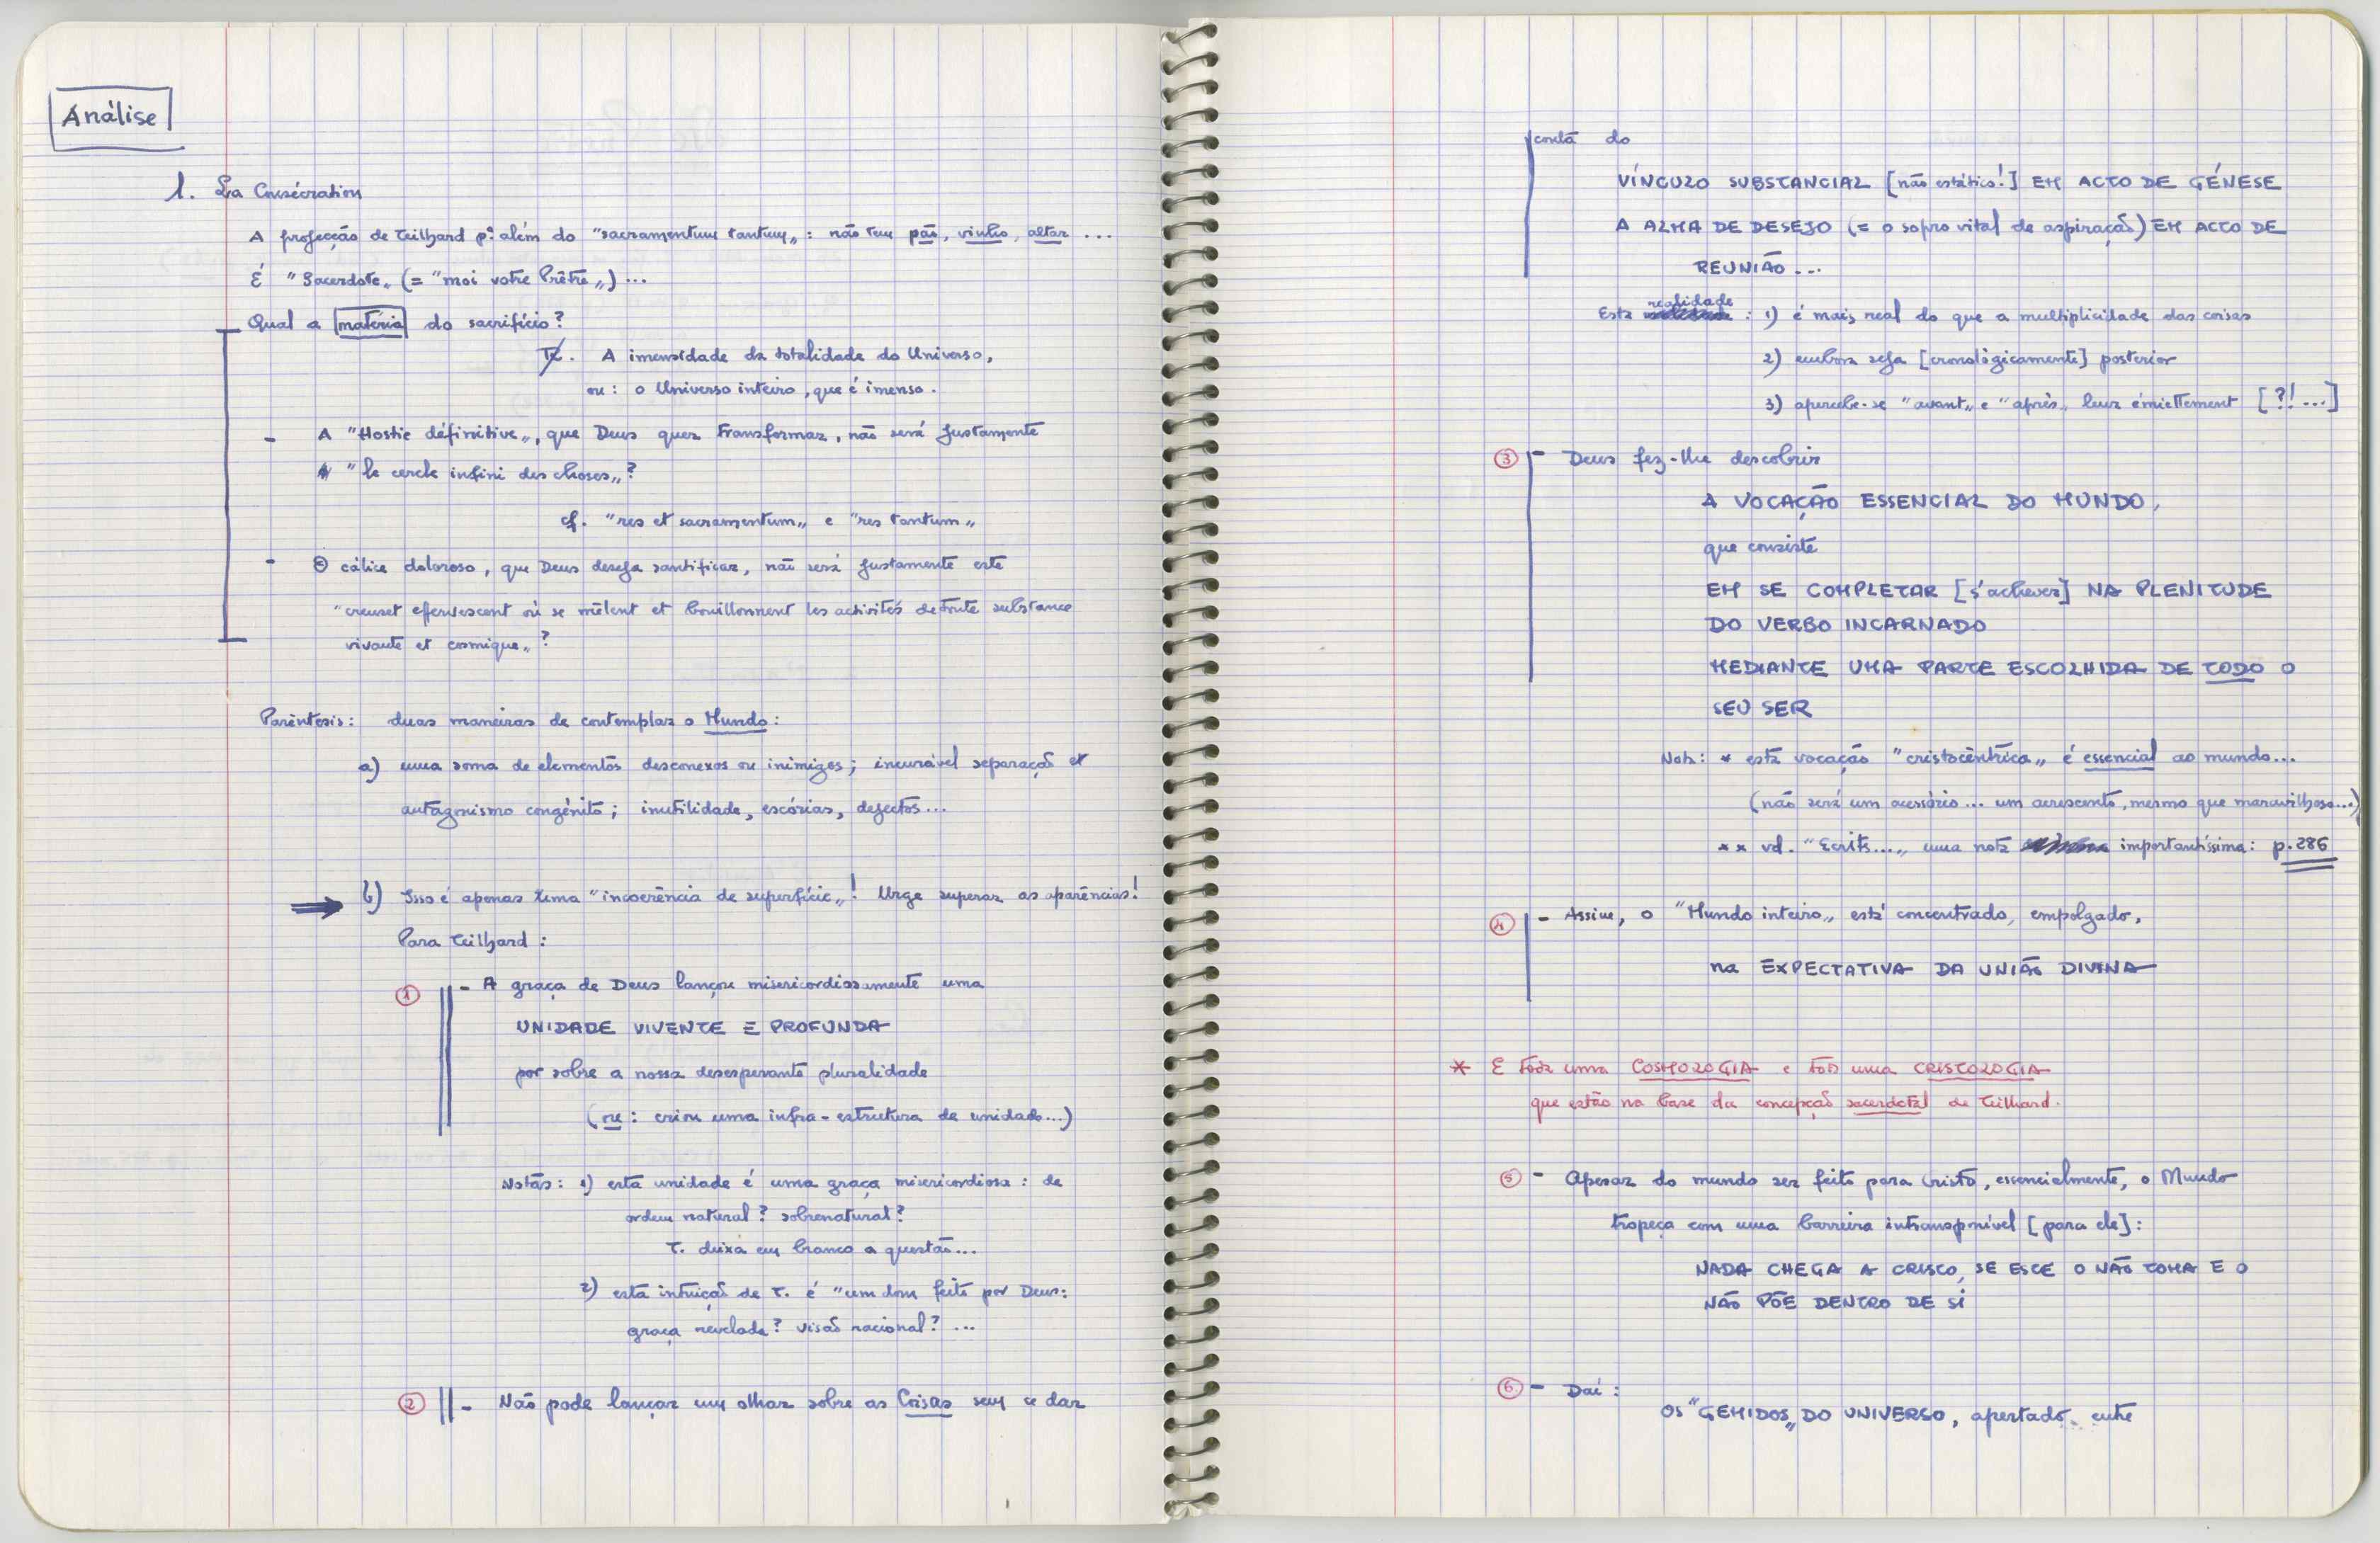 Análise
1. La Consécration
A projecção de Teilhard p.ª além do "sacramentum tantum„: não tem pão, vinho, altar ...
É "Sacerdote„ (= "moi votre Prêtre„) ...
Qual a matéria do sacrifício?
R. A imensidade da totalidade do Universo,
ou: o Universo inteiro, que é imenso.
- A "Hostie définitive„, que Deus quer transformar, não será justamente
"le cercle infini des choses„?
cf. "res et sacramentum„ e "res tantum„
- O cálice doloroso, que Deus deseja santificar, não será justamente este
"creuset effervescent où se mêlent et bouillonnent les activités de toute substance
vivante et cosmique„?
Parêntesis: duas maneiras de contemplar o Mundo:
a) uma soma de elementos desconexos ou inimigos; incurável separação et
antagonismo congénito; inutilidade, escórias, dejectos...
b) Isso é apenas uma "incoerência de superfície„! Urge superar as aparências!
Para Teilhard:
1 - A graça de Deus lançou misericordiosamente uma
UNIDADE VIVENTE E PROFUNDA
por sobre a nossa desesperante pluralidade
(ou: criou uma infra-estrutura de unidade...)
Notas: 1) esta unidade é uma graça misericordiosa: de
ordem natural? sobrenatural?
T. deixa em branco a questão...
2) esta intuição de T. é "um dom feito por Deus:
graça revelada? visão racional? ...
2 - Não pode lançar um olhar sobre as Coisas sem se dar
conta do
VÍNCULO SUBSTANCIAL [não estático!] EM ACTO DE GÉNESE
A ALMA DE DESEJO (= o sopro vital de aspiração) EM ACTO DE
REUNIÃO...
Esta realidade: 1) é mais real do que a multiplicidade das coisas
2) embora seja [cronològicamente] posterior
3) apercebe-se "avant„ e "après„ leur émiettement [?!...]
3 - Deus fez-lhe descobrir
A VOCAÇÃO ESSENCIAL DO MUNDO,
que consiste
EM SE COMPLETAR [s'achever] NA PLENITUDE
DO VERBO INCARNADO
MEDIANTE UMA PARTE ESCOLHIDA DE TODO O
SEU SER
Nota: * esta vocação "cristocêntrica„ é essencial ao mundo...
(não será um acessório... um acrescento, mesmo que maravilhoso...)
** vd. "Ecrits...„ uma nota importantíssima: p.286
4 - Assim, o "Mundo inteiro„ está concentrado, empolgado,
na EXPECTATIVA DA UNIÃO DIVINA
* E toda uma COSMOLOGIA e toda uma CRISTOLOGIA
que estão na base da concepção sacerdotal de Teilhard.
5 - Apesar do mundo ser feito para Cristo, essencialmente, o Mundo
tropeça com uma barreira intransponível [para ele]:
NADA CHEGA A CRISTO, SE ESTE O NÃO TOMA E O
NÃO PÕE DENTRO DE SI
6 - Daí:
OS "GEMIDOS„ DO UNIVERSO, apertado entre